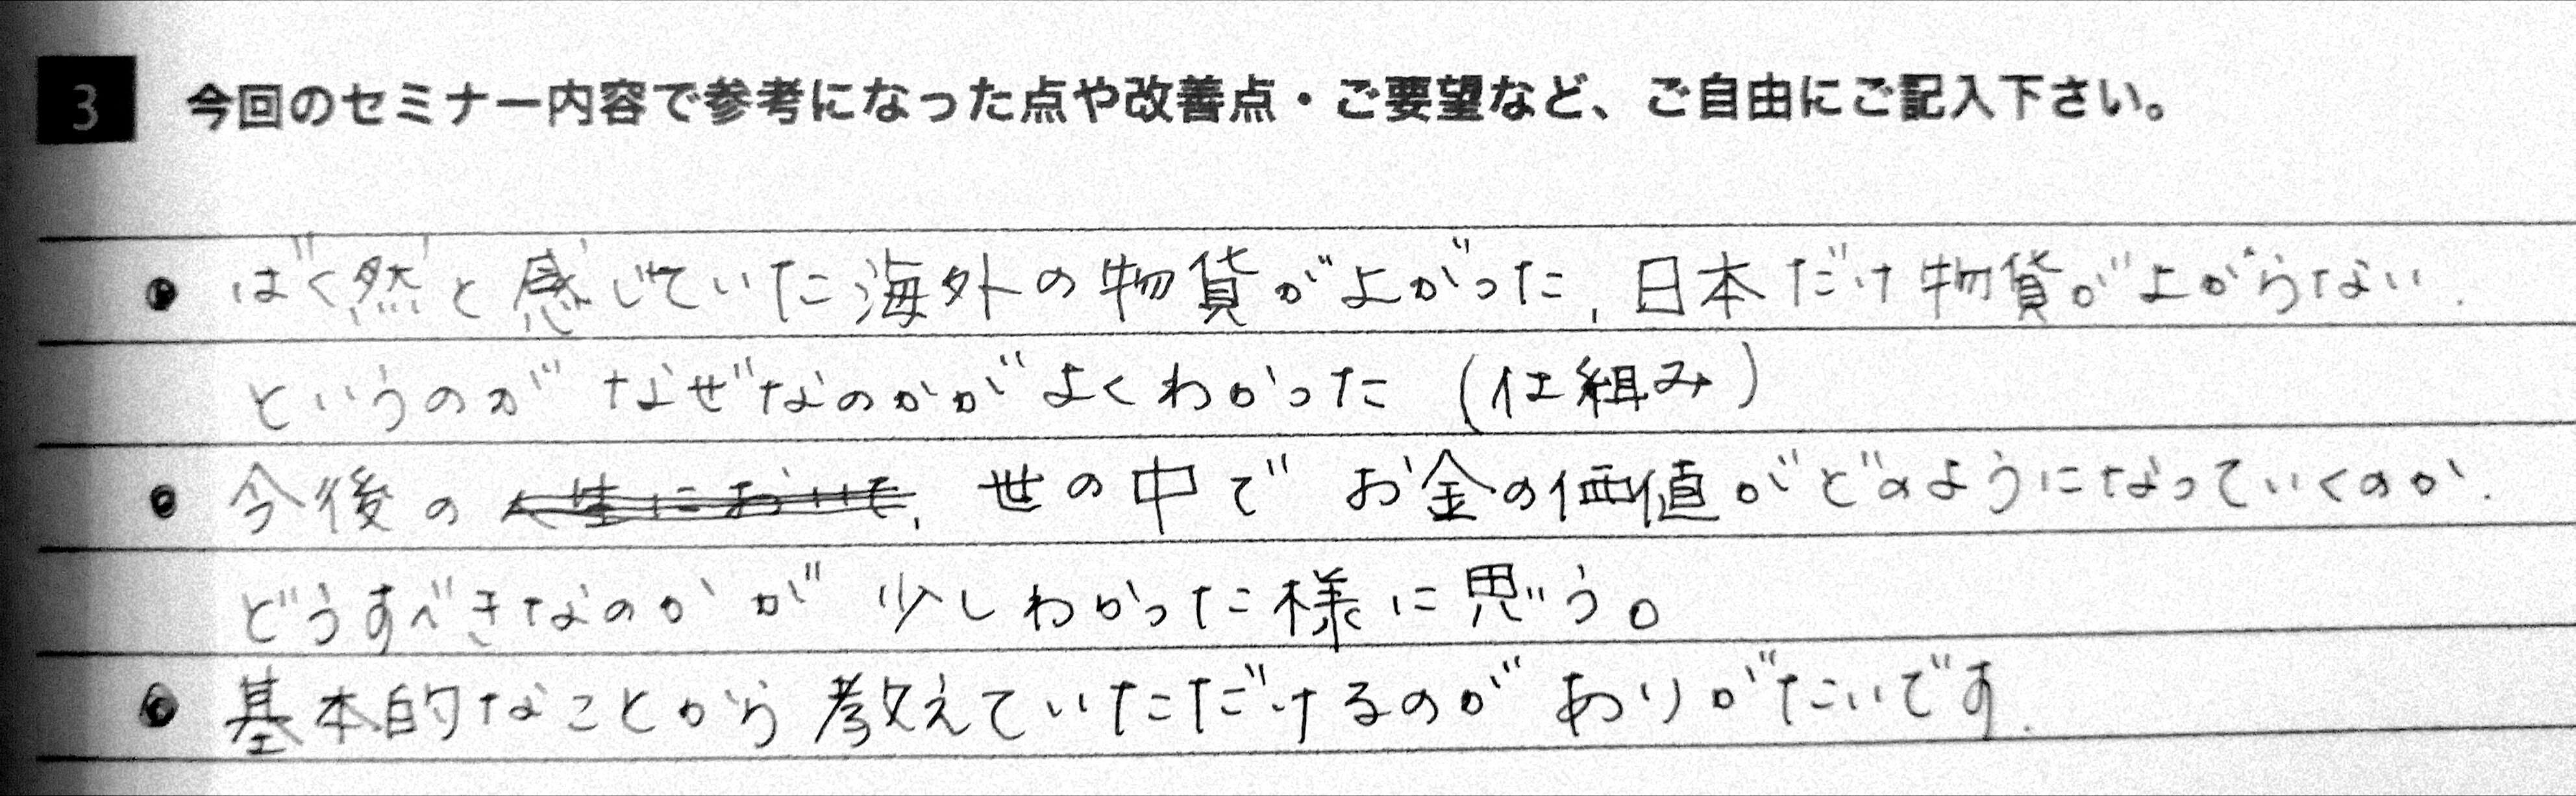 3 今回のセミナー内容で参考になった点や改善点・ご要望など、ご自由にご記入下さい。
● ばく然と感じていた海外の物貨が上がった、日本だけ物貨が上がらない、
というのがなぜなのかがよくわかった (仕組み)
● 今後の人生において、世の中でお金の価値がどのようになっていくのか、
どうすべきなのかが少しわかった様に思う。
● 基本的なことから教えていただけるのがありがたいです。